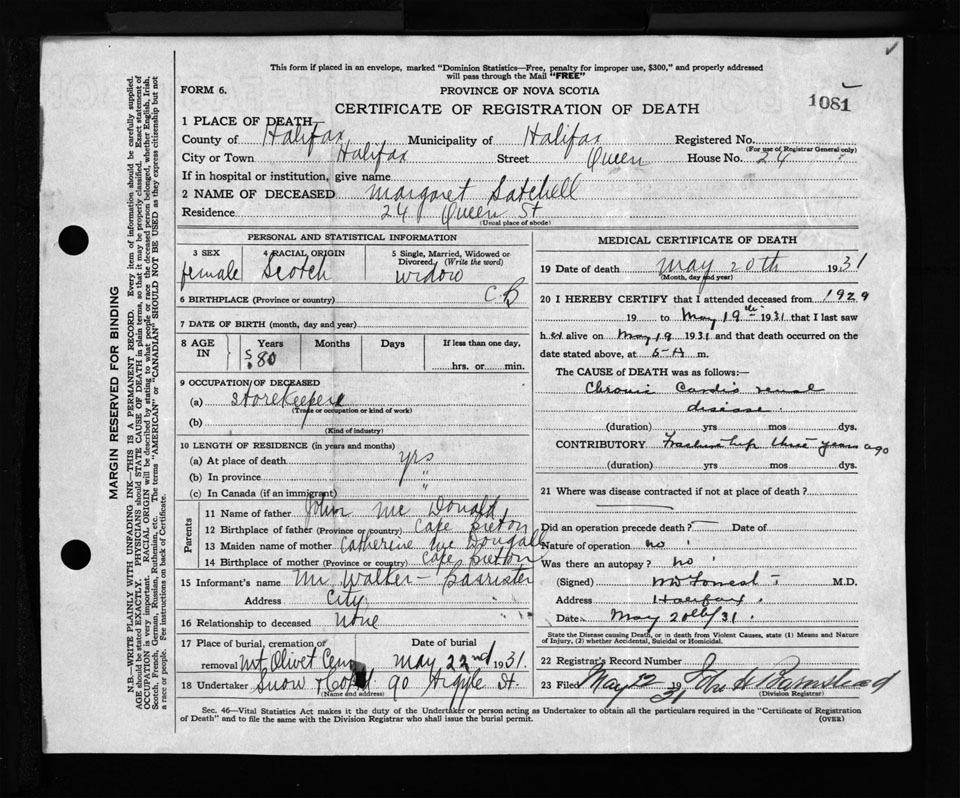 This form if placed in an envelope, marked "Dominion Statistics—Free, penalty for improper use, $300," and properly addressed
will pass through the Mail "FREE"
FORM 6.
PROVINCE OF NOVA SCOTIA
1081
CERTIFICATE OF REGISTRATION OF DEATH
1 PLACE OF DEATH
County of Halifax Municipality of Halifax Registered No.
(For use of Registrar General only)
City or Town Halifax Street Queen House No. 24
If in hospital or institution, give name
2 NAME OF DECEASED Margaret Satchell
Residence 24 Queen St
(Usual place of abode)
MARGIN RESERVED FOR BINDING
N.B.—WRITE PLAINLY WITH UNFADING INK—THIS IS A PERMANENT RECORD. Every item of information should be carefully supplied.
AGE should be stated EXACTLY. PHYSICIANS should STATE CAUSE OF DEATH in plain terms, so that it may be properly classified. Exact statement of
OCCUPATION is very important. RACIAL ORIGIN will be described by stating to what people or race the deceased person belonged, whether English, Irish,
Scotch, French, German, Russian, Ruthenian, etc. The terms "AMERICAN" or "CANADIAN" SHOULD NOT BE USED as they express citizenship but not
a race or people. See instructions on back of Certificate.
PERSONAL AND STATISTICAL INFORMATION
3 SEX
female
4 RACIAL ORIGIN
Scotch
5 Single, Married, Widowed or
Divorced. (Write the word)
widow
6 BIRTHPLACE (Province or country) C B
7 DATE OF BIRTH (month, day and year)
8 AGE IN
Years Months Days If less than one day,
80 hrs. or min.
9 OCCUPATION OF DECEASED
(a) Storekeeper
(Trade or occupation or kind of work)
(b)
(Kind of industry)
10 LENGTH OF RESIDENCE (in years and months)
(a) At place of death yrs
(b) In province "
(c) In Canada (if an immigrant) "
Parents
11 Name of father John Mc Donald
12 Birthplace of father (Province or country) Cape Breton
13 Maiden name of mother Catherine Mc Dougall
14 Birthplace of mother (Province or country) Cape Breton
15 Informant's name Mr Walker – Barrister
Address City
16 Relationship to deceased none
17 Place of burial, cremation or
removal Mt Olivet Cem
Date of burial
May 22nd 1931.
18 Undertaker Snow & Co 90 Argyle St.
(Name and address)
MEDICAL CERTIFICATE OF DEATH
19 Date of death May 20th 1931
(Month, day and year)
20 I HEREBY CERTIFY that I attended deceased from 1929
19 to May 19th 1931 that I last saw
her alive on May 19 1931 and that death occurred on the
date stated above, at 5-A m.
The CAUSE OF DEATH was as follows:—
Chronic Cardio renal
disease.
(duration) yrs mos dys.
CONTRIBUTORY Fracture hip three years ago
(duration) yrs mos dys.
21 Where was disease contracted if not at place of death?
Did an operation precede death? — Date of
Nature of operation no
Was there an autopsy? no
(Signed) M.D.
Address Halifax.
Date May 20th/31.
State the Disease causing Death, or in death from Violent Causes, state (1) Means and Nature
of Injury, (2) whether Accidental, Suicidal or Homicidal.
22 Registrar's Record Number
23 Filed May 22 1931 John H Barnstead
(Division Registrar)
Sec. 46—Vital Statistics Act makes it the duty of the Undertaker or person acting as Undertaker to obtain all the particulars required in the "Certificate of Registration
of Death" and to file the same with the Division Registrar who shall issue the burial permit.
(OVER)